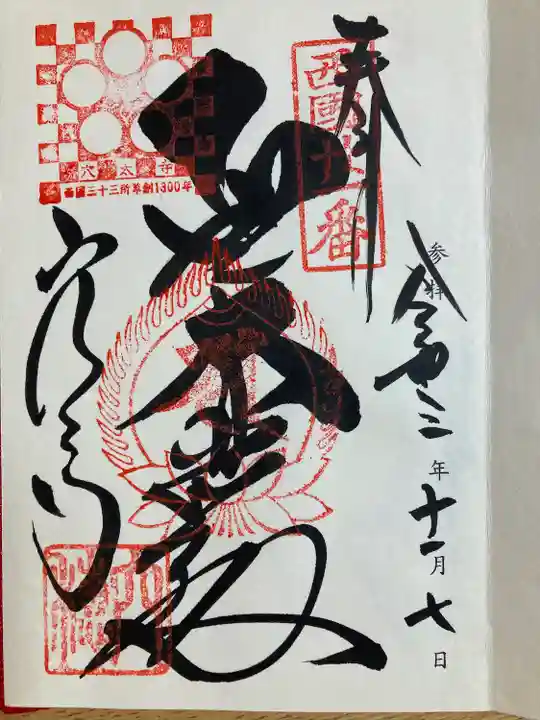 奉
参拝
令和三年十一月七日
西國廿一番
聖大悲殿
穴太寺
西国三十三所草創1300年
穴太寺